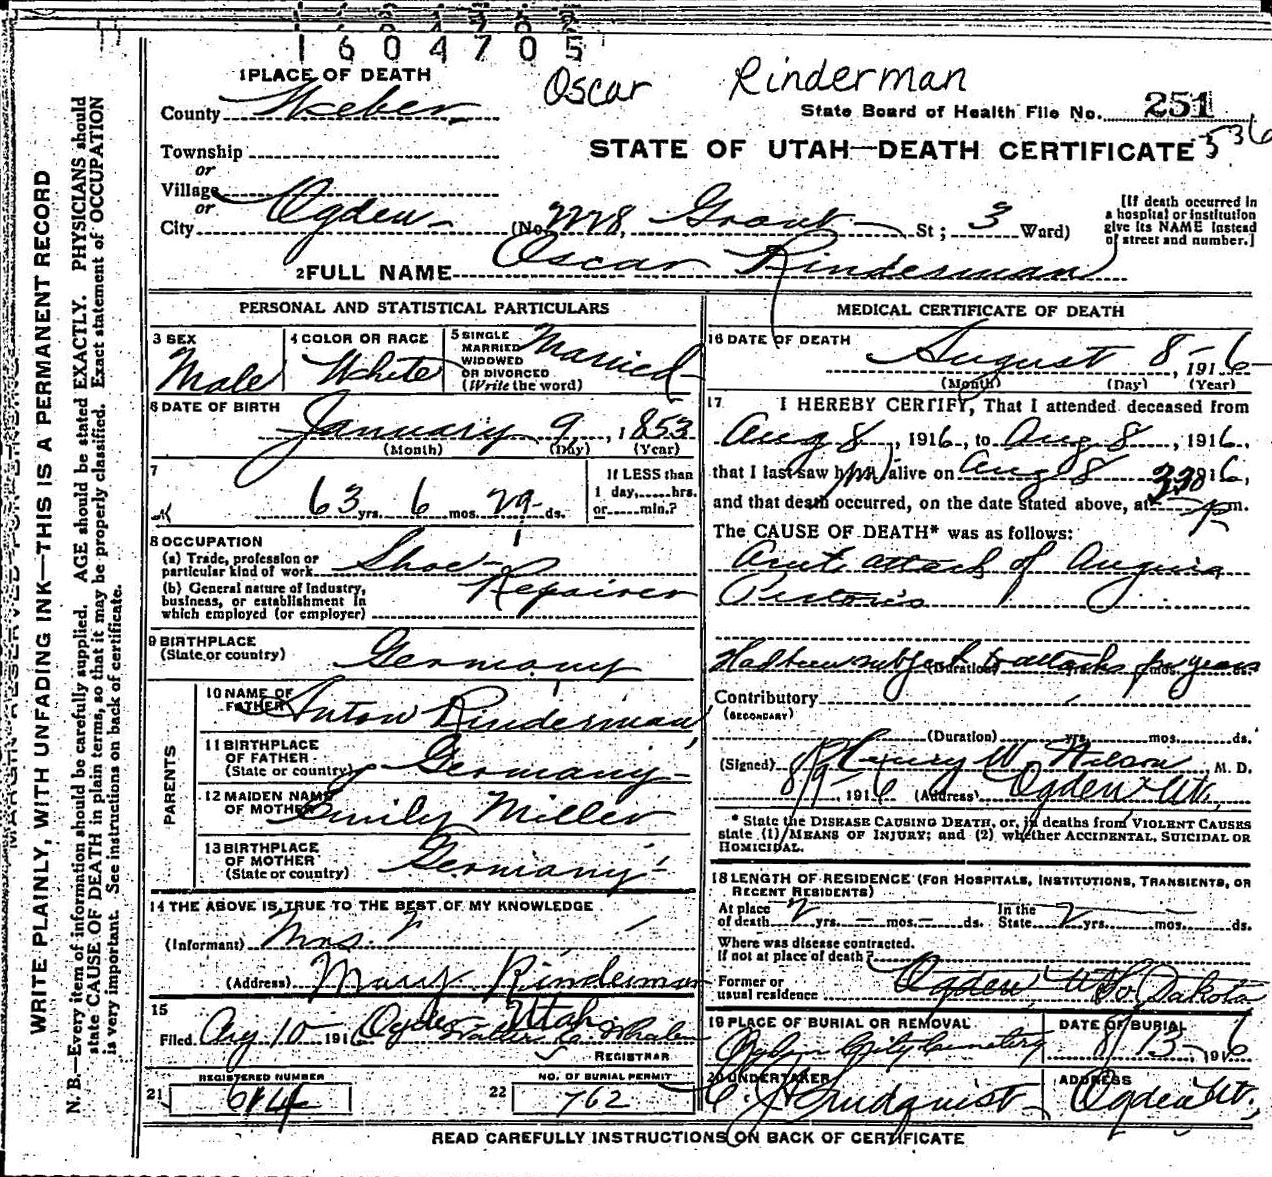 1604705
Oscar Rinderman
1 PLACE OF DEATH
County Weber
State Board of Health File No. 251
536
Township
or
STATE OF UTAH—DEATH CERTIFICATE
Village
or
City Ogden (No. 2228, Grant St; 3 Ward)
[If death occurred in
a hospital or institution
give its NAME instead
of street and number.]
2 FULL NAME Oscar Rinderman
PERSONAL AND STATISTICAL PARTICULARS
3 SEX
Male
4 COLOR OR RACE
White
5 SINGLE
MARRIED
WIDOWED
OR DIVORCED
(Write the word)
Married
6 DATE OF BIRTH
January 9, 1853
(Month) (Day) (Year)
7
63 yrs. 6 mos. 29 ds.
If LESS than
1 day,......hrs.
or......min.?
8 OCCUPATION
(a) Trade, profession or
particular kind of work Shoe-
Repairer
(b) General nature of Industry,
business, or establishment in
which employed (or employer)
9 BIRTHPLACE
(State or country) Germany
PARENTS
10 NAME OF
FATHER Anton Rinderman
11 BIRTHPLACE
OF FATHER
(State or country) Germany
12 MAIDEN NAME
OF MOTHER Emily Miller
13 BIRTHPLACE
OF MOTHER
(State or country) Germany
14 THE ABOVE IS TRUE TO THE BEST OF MY KNOWLEDGE
(Informant) Mrs.
(Address) Mary Rinderman
15
Filed Aug 10 1916 Ogden Utah
Walter Whalen
REGISTRAR
REGISTERED NUMBER
21 614
NO. OF BURIAL PERMIT
22 762
MEDICAL CERTIFICATE OF DEATH
16 DATE OF DEATH
August 8-, 1916
(Month) (Day) (Year)
17 I HEREBY CERTIFY, That I attended deceased from
Aug 8, 1916, to Aug 8, 1916,
that I last saw him alive on Aug 8 1916,
and that death occurred, on the date stated above, at 3:30 P m.
The CAUSE OF DEATH* was as follows:
Acute attack of Angina
Pectoris
Had been subject to attacks for years
(Duration) yrs. mos. ds.
Contributory
(SECONDARY)
(Duration) yrs. mos. ds.
(Signed) Henry W. Nelson M. D.
8/9- 1916 (Address) Ogden Ut.
* State the DISEASE CAUSING DEATH, or, in deaths from VIOLENT CAUSES
state (1) MEANS OF INJURY; and (2) whether ACCIDENTAL, SUICIDAL OR
HOMICIDAL.
18 LENGTH OF RESIDENCE (FOR HOSPITALS, INSTITUTIONS, TRANSIENTS, OR
RECENT RESIDENTS)
At place
of death 2 yrs. - mos. - ds. In the
State 2 yrs. mos. ds.
Where was disease contracted.
If not at place of death?
Ogden, Ut
Former or
usual residence So. Dakota
19 PLACE OF BURIAL OR REMOVAL
Ogden City Cemetery
DATE OF BURIAL
8/13-1916
20 UNDERTAKER
C. J. Lindquist
ADDRESS
Ogden Ut.
READ CAREFULLY INSTRUCTIONS ON BACK OF CERTIFICATE
WRITE PLAINLY, WITH UNFADING INK—THIS IS A PERMANENT RECORD
N. B.—Every item of information should be carefully supplied. AGE should be stated EXACTLY. PHYSICIANS should
state CAUSE OF DEATH in plain terms, so that it may be properly classified. Exact statement of OCCUPATION
is very important. See instructions on back of certificate.